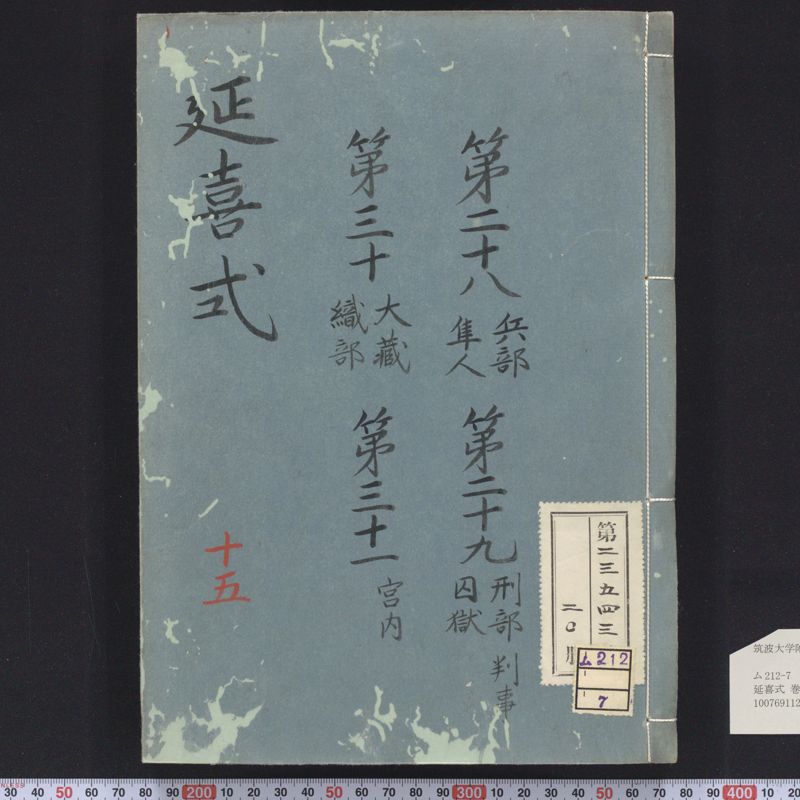 延喜式
第二十八 兵部
隼人
第二十九 刑部 判事
囚獄
第三十 大藏
織部
第三十一 宮内
十五
第二三五四三
二〇
ム212
7
筑波大学附
ム212-7
延喜式 巻
100769112
30 40 50 60 70 80 90 200 10 20 30 40 50 60 70 80 90 300 10 20 30 40 50 60 70 80 90 400 10 20